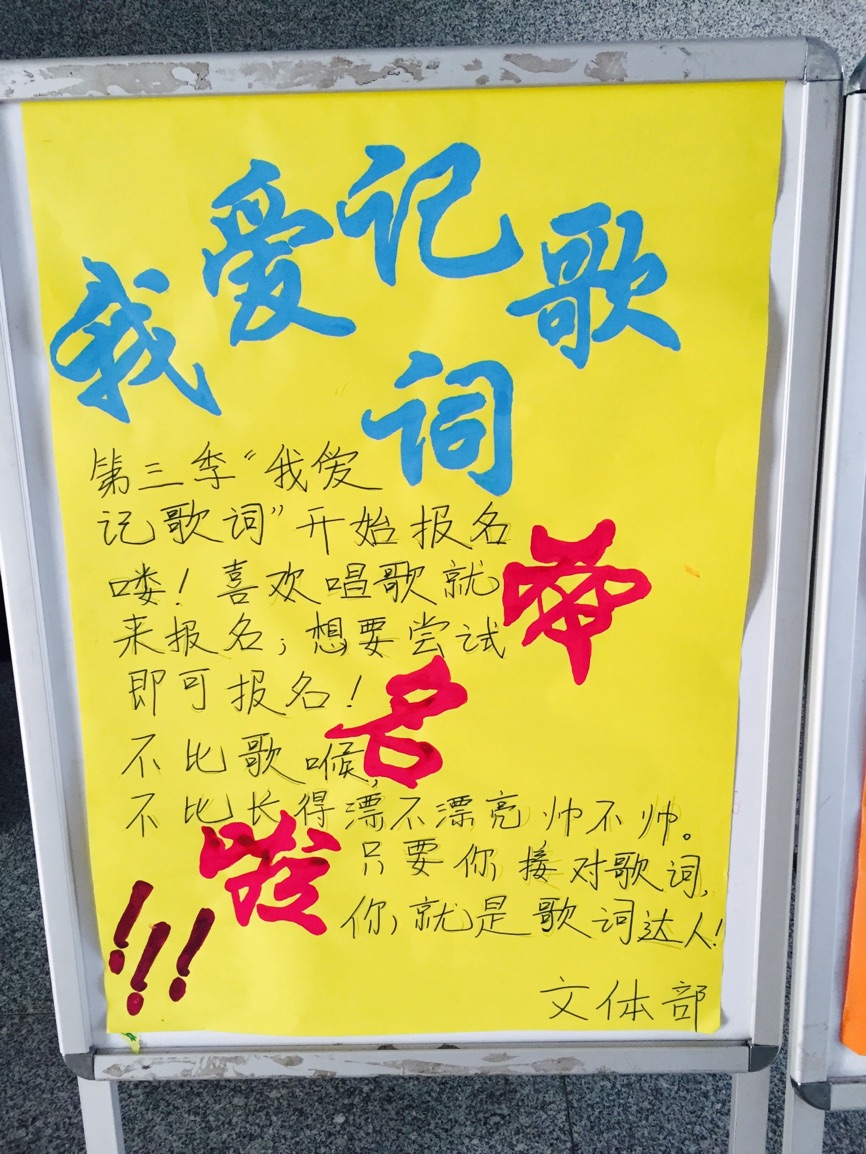 我爱记歌
词
第三季“我爱
记歌词”开始报名
喽！喜欢唱歌就
来报名；想要尝试
即可报名！
名
不比歌喉，
不比长得漂不漂亮 帅不帅。
只要你接对歌词，
你，就是歌词达人！
!!!
文体部